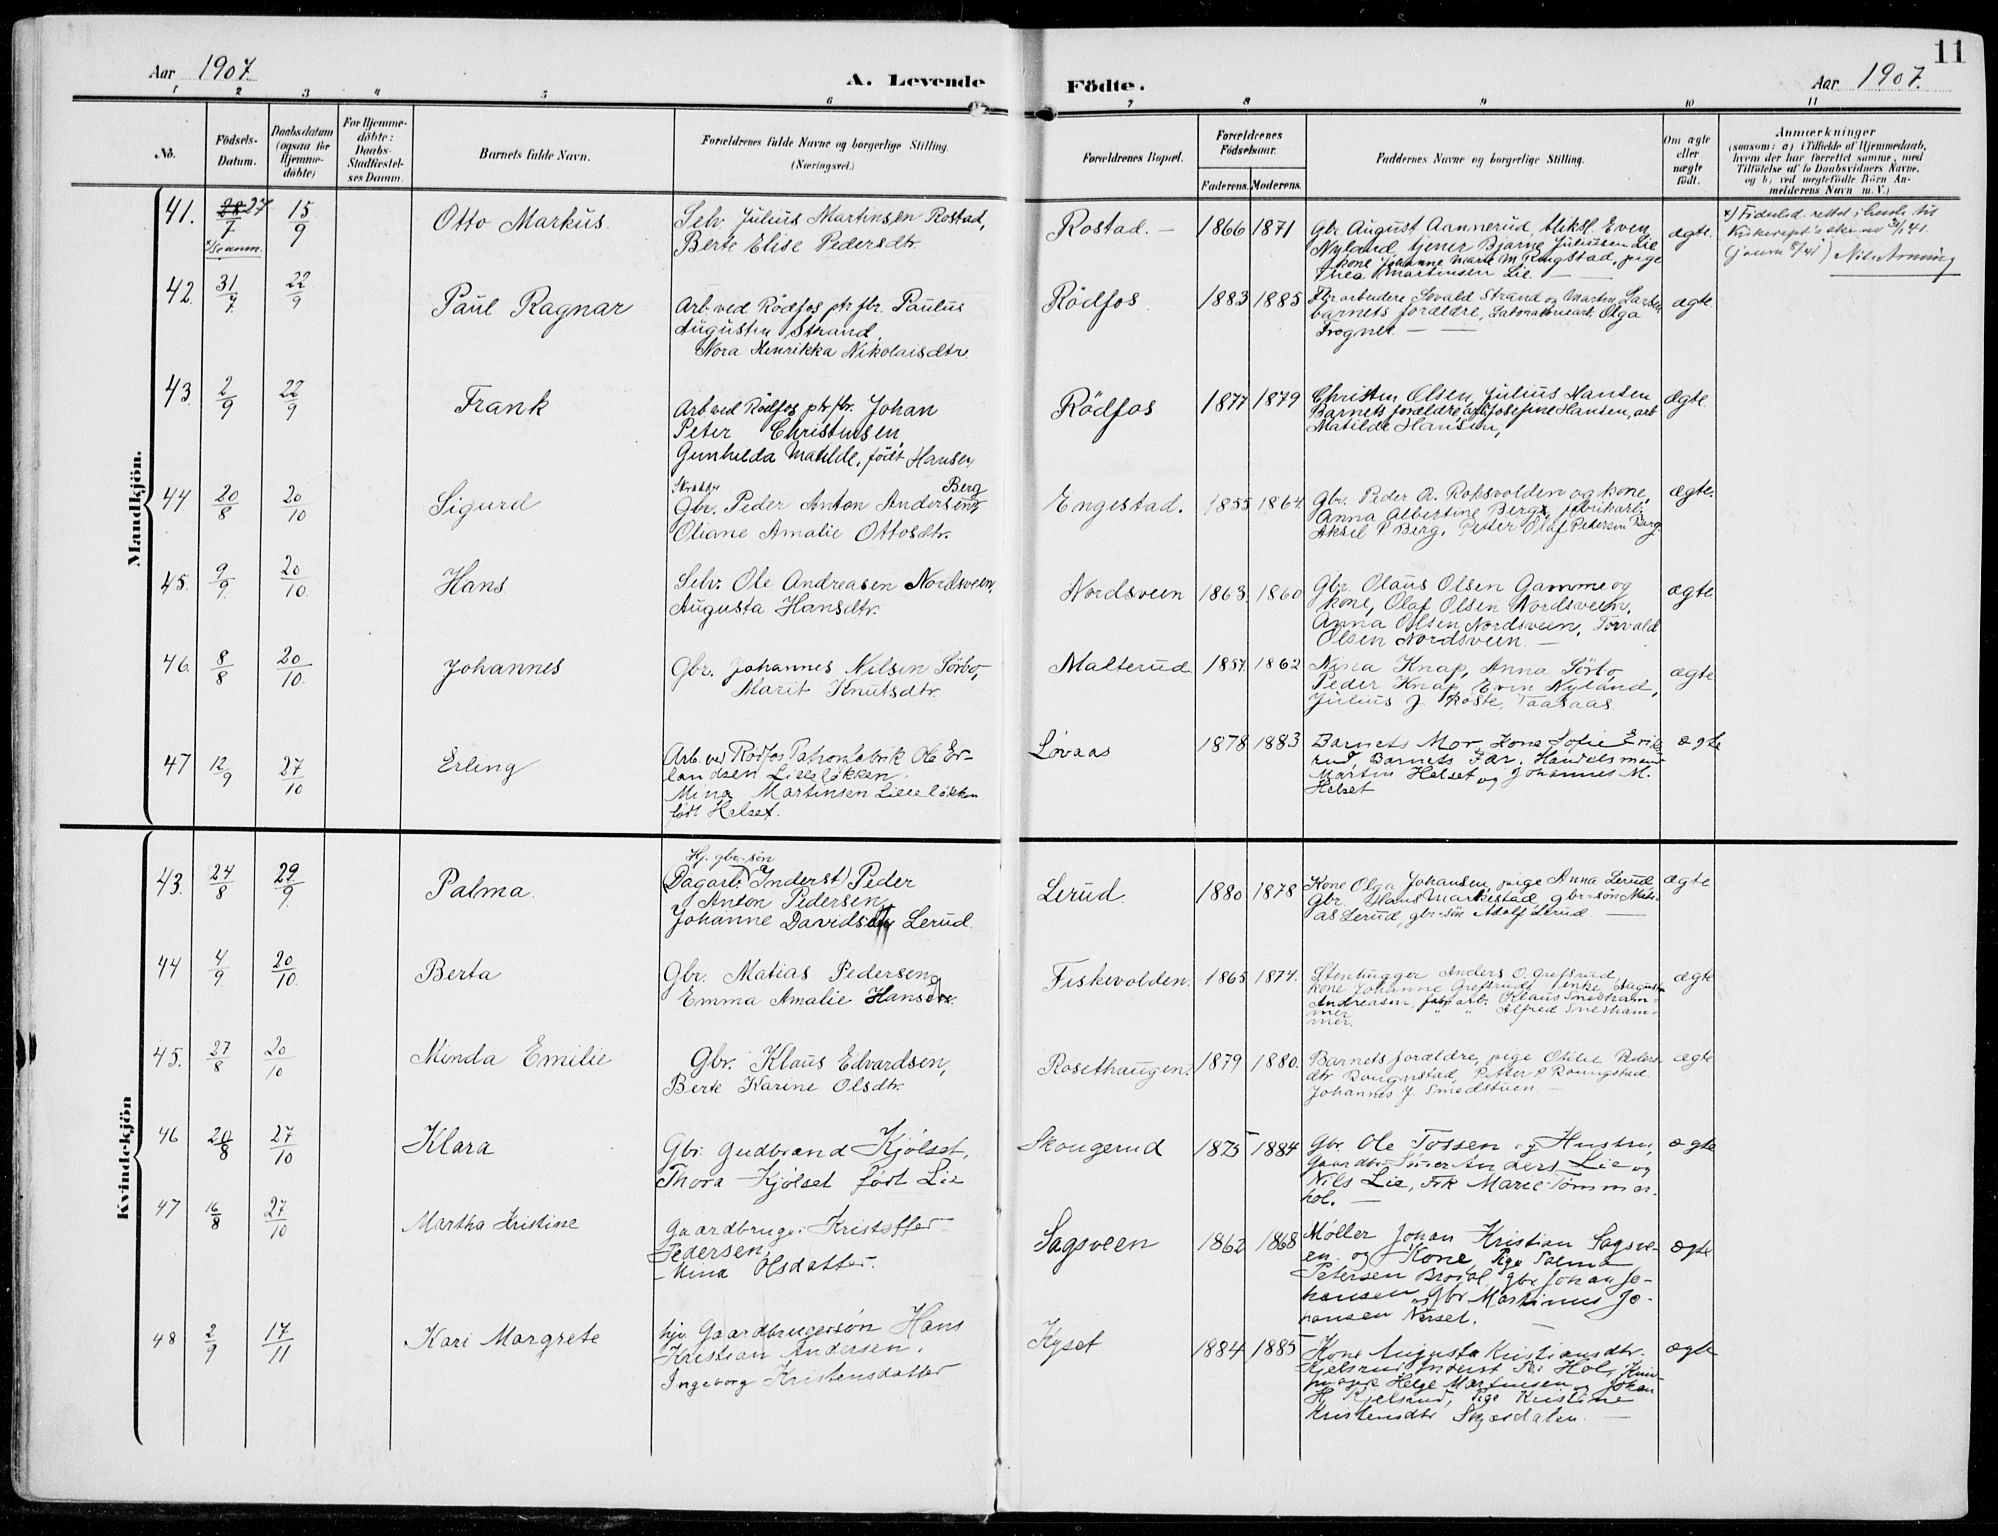 11
Aar 1907
A. Levende
Födte.
Aar 1907.
1 2 3 4 5 6 7 8 9 10 11
No.
Födsels-
Datum.
Daabsdatum
(ogsaa for
Hjemme-
döbte)
For Hjemme-
döbte:
Daabs-
Stadfæstel-
ses Datum.
Barnets fulde Navn.
Forældrenes fulde Navne og borgerlige Stilling.
(Næringsvei.)
Forældrenes Bopæl.
Forældrenes
Födselsaar.
Faderens. Moderens.
Faddernes Navne og borgerlige Stilling.
Om ægte
eller
uægte
födt.
Anmærkninger
(saasom: a) i Tilfælde af Hjemmedaab,
hvem der har forrettet samme, med
Tilföielse af to Daabsvidners Navne,
og b) ved uægtefödte Börn An-
melderens Navn m. V.)
Mandkjön.
41. 28 27/7 15/9 Otto Markus.
Selv. Julius Martinsen Rostad,
Berte Elise Pedersdtr.
Rostad. — 1866 1871
Gbr. August Aannerud, Even
Nyland, tjener Bjarne Juliussen Lie
kone Johanne Marie M. Ringstad, pige
Thea Martinsen Lie. —
ægte.
x) rettet til
42. 31/7 22/9 Paul Ragnar
Arb. ved Rödfos ptr. fbr. Paulus
Augustin Strand,
Nora Henrikka Nikolaisdtr.
Rödfos 1883 1885
Fbr arbeidere Sevald Strand og Martin Larsen
barnets forældre, Olga
Frogner — —
ægte.
43. 2/9 22/9 Frank
Arb ved Rödfos ptr. fbr. Johan
Peter Christensen,
Gunhilda Matilde, født Hansen
Rödfos 1877 1879
Christen Olsen, Julius Hansen
Barnets forældre, Josefine Hansen, arb
Matilde Hansen,
Ægte.
44 20/8 20/10 Sigurd
Gbr. Peder Anton Andersen Berg
Oliane Amalie Ottosdtr.
Engestad. 1855 1864
Gbr. Peder A. Roksvolden og kone,
Anna Albertine Berg, fabrikarb.
Aksel P Berg. Petter Olaf Petersen Berg
Ægte.
45. 9/9 20/10 Hans
Selv. Ole Andreasen Nordsveen,
Augusta Hansdtr.
Nordsveen 1863. 1860
Gbr. Olaus Olsen Gamme og
kone, Olaf Olsen Nordsveen.
Anna Olsen Nordsveen, Torvald
Olsen Nordsveen —
ægte
46. 8/8 20/10. Johannes
Gbr. Johannes Nilsen Sörbo,
Marit Knutsdtr.
Malterud 1857. 1862
Nina Knap, Anna Sörbo,
Peder Knap, Even Nyland,
Julius J. Röste, Taasaas.
ægte
47 12/9 27/10 Erling
Arb. ved Rödfos Patronfabrik Ole Er-
landsen Lilleløkken.
Mina Martinsen Lilleløkken
født Helset.
Løvaas 1878 1883
Barnets Mor, Kone Sofie Erik
rud, Barnets Far. Handelsmand
Martin Helset og Johannes M.
Helset
ægte
Kvindekjön
43. 24/8 29/9. Palma.
Hj. gbr-søn
(Dagarb. Inderst) Peder
Anton Pedersen
Johanne Davidsdtr Lerud.
Lerud. 1880 1878
Kone Olga Johansen, pige Anna Lerud,
Gbr. Hans Markestad, gbr-søn Mati-
as Lerud, gbr-søn Adolf Lerud —
ægte
44 4/9 20/10. Berta
Gbr. Matias Pedersen
Emma Amalie Hansdtr.
Fiskevolden. 1865 1874.
Stenhugger Anders O. Grefsrud,
kone Johanne Grefsrud, enke Auguste
Andreasen, arb. Klaus Sneisham-
mer " " Alfred Sneisham-
mer.
ægte
45. 27/8 20/10 Minda Emilie
Gbr. Klaus Edvardsen,
Berte Karine Olsdtr.
Rosethaugen. 1879 1880.
Barnets forældre, pige Otilie Peders
dtr. Roungstad, Petter P Roungstad.
Johannes J. Smedstuen —
ægte
46 20/8 27/10 Klara
Gbr. Gudbrand Kjølset,
Thora Kjølset født Lie
Skougerud 1875 1884
Gbr Ole Tossen og Hustru,
Gaardbr Sønner Anders Lie og
Nils Lie, Frk Marie Tømmer-
hol. —
ægte
47 16/8 27/10 Martha Kristine
Gaardbruger Kristoffer
Pedersen,
Mina Olsdatter.
Sagsveen 1862 1868
Møller Johan Kristian Sagsve-
en og Kone, Pige Palma
Petersen Broial, gbr Johan Jo-
hansen og Gbr Martinus Jo-
hansen Nerset. —
ægte
48 2/9 17/11 Kari Margrete
hjv. Gaardbrugersøn Hans
Kristian Andersen.
Ingeborg Kristensdatter
Kyset 1884 1885
Kone Augusta Kristiansdtr.
Kjelsrud, Inderst Hol,
Helge Martinsen, Johan
H. Kjelsrud, Pige Kristine
Kristensdtr Skjærdalen. —
ægte